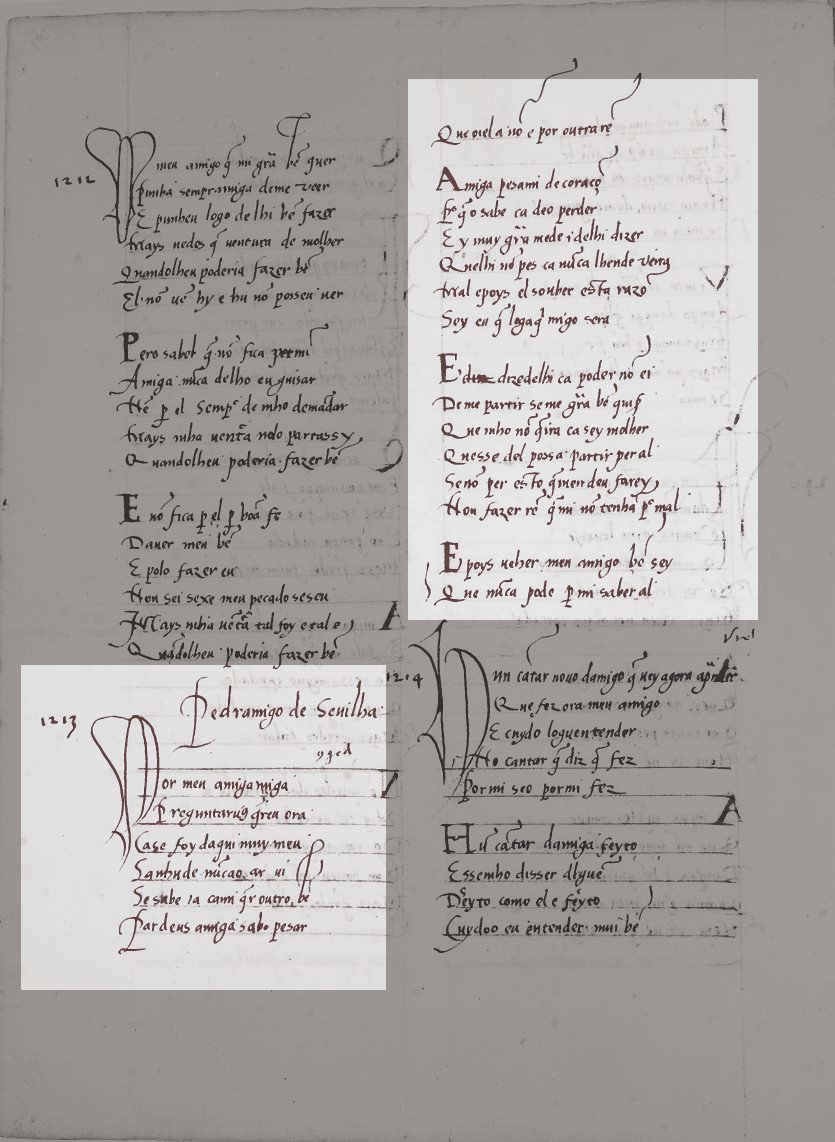 1212
meu amigo q̃ mi grã bẽ quer
punha sempramiga de me veer
E punheu logo de lhi bẽ fazer
Mays uedes q̃ uentura de molher
Quandolheu poderia fazer bẽ
El nõ uẽ hy e hu nõ posseu uer
Pero sabel q̃ nõ fica per mi
Amiga nũca delho eu guisar
Nẽ per el sempre de mho demãdar
Mays mha uentã nolo partassy
Quandolheu poderia fazer bẽ
E nõ fica per el per boã fe
Dauer meu bẽ
E polo fazer eu
Non sei sexe meu pecado seseu
Mays mha uentã tal foy e tal e
Quãdolheu poderia fazer bẽ
Pedramigo de Seuilha
1213
Por meu amigamiga
Preguntarug q̃reu ora
Case foy daqui muy meu
Sanhude nũcao ar ui
Se sabe ia camı q̃r outro bẽ
Par deus amiga sabo pesar
Que oiel a nõ e por outra rẽ
Amiga pesami de coraçõ
Pº q̃ o sabe ca deo perder
E y muy grã mede i delhi dizer
Quelhi nõ pes ca nũca lhende uerra
Mal e poys el souber esta razõ
Sey eu q̃ loga q̃ migo sera
E dizedelhi ca poder nõ ei
De me partir se me grã bẽ quis
Que mho nõ q̃ira ca sey molher
Quesse del possa partir per al
Se nõ per esto q̃ mendeu farey
Non fazer rẽ q̃ mi nõ tenhã pº mal
E poys ueher meu amigo bẽ sey
Que nũca pode per mi saber al
1214
Hun cãtar nouo damigo q̃rrey agora aprẽder
Que fez ora meu amigo
E cuydo loguentender
No cantar q̃ diz q̃ fez
Por mi seo por mi fez
Hũ cãtar damiga feyto
Essemho disser alguẽ
Dereyto como el e feyto
Cuydoo eu entender mui bẽ